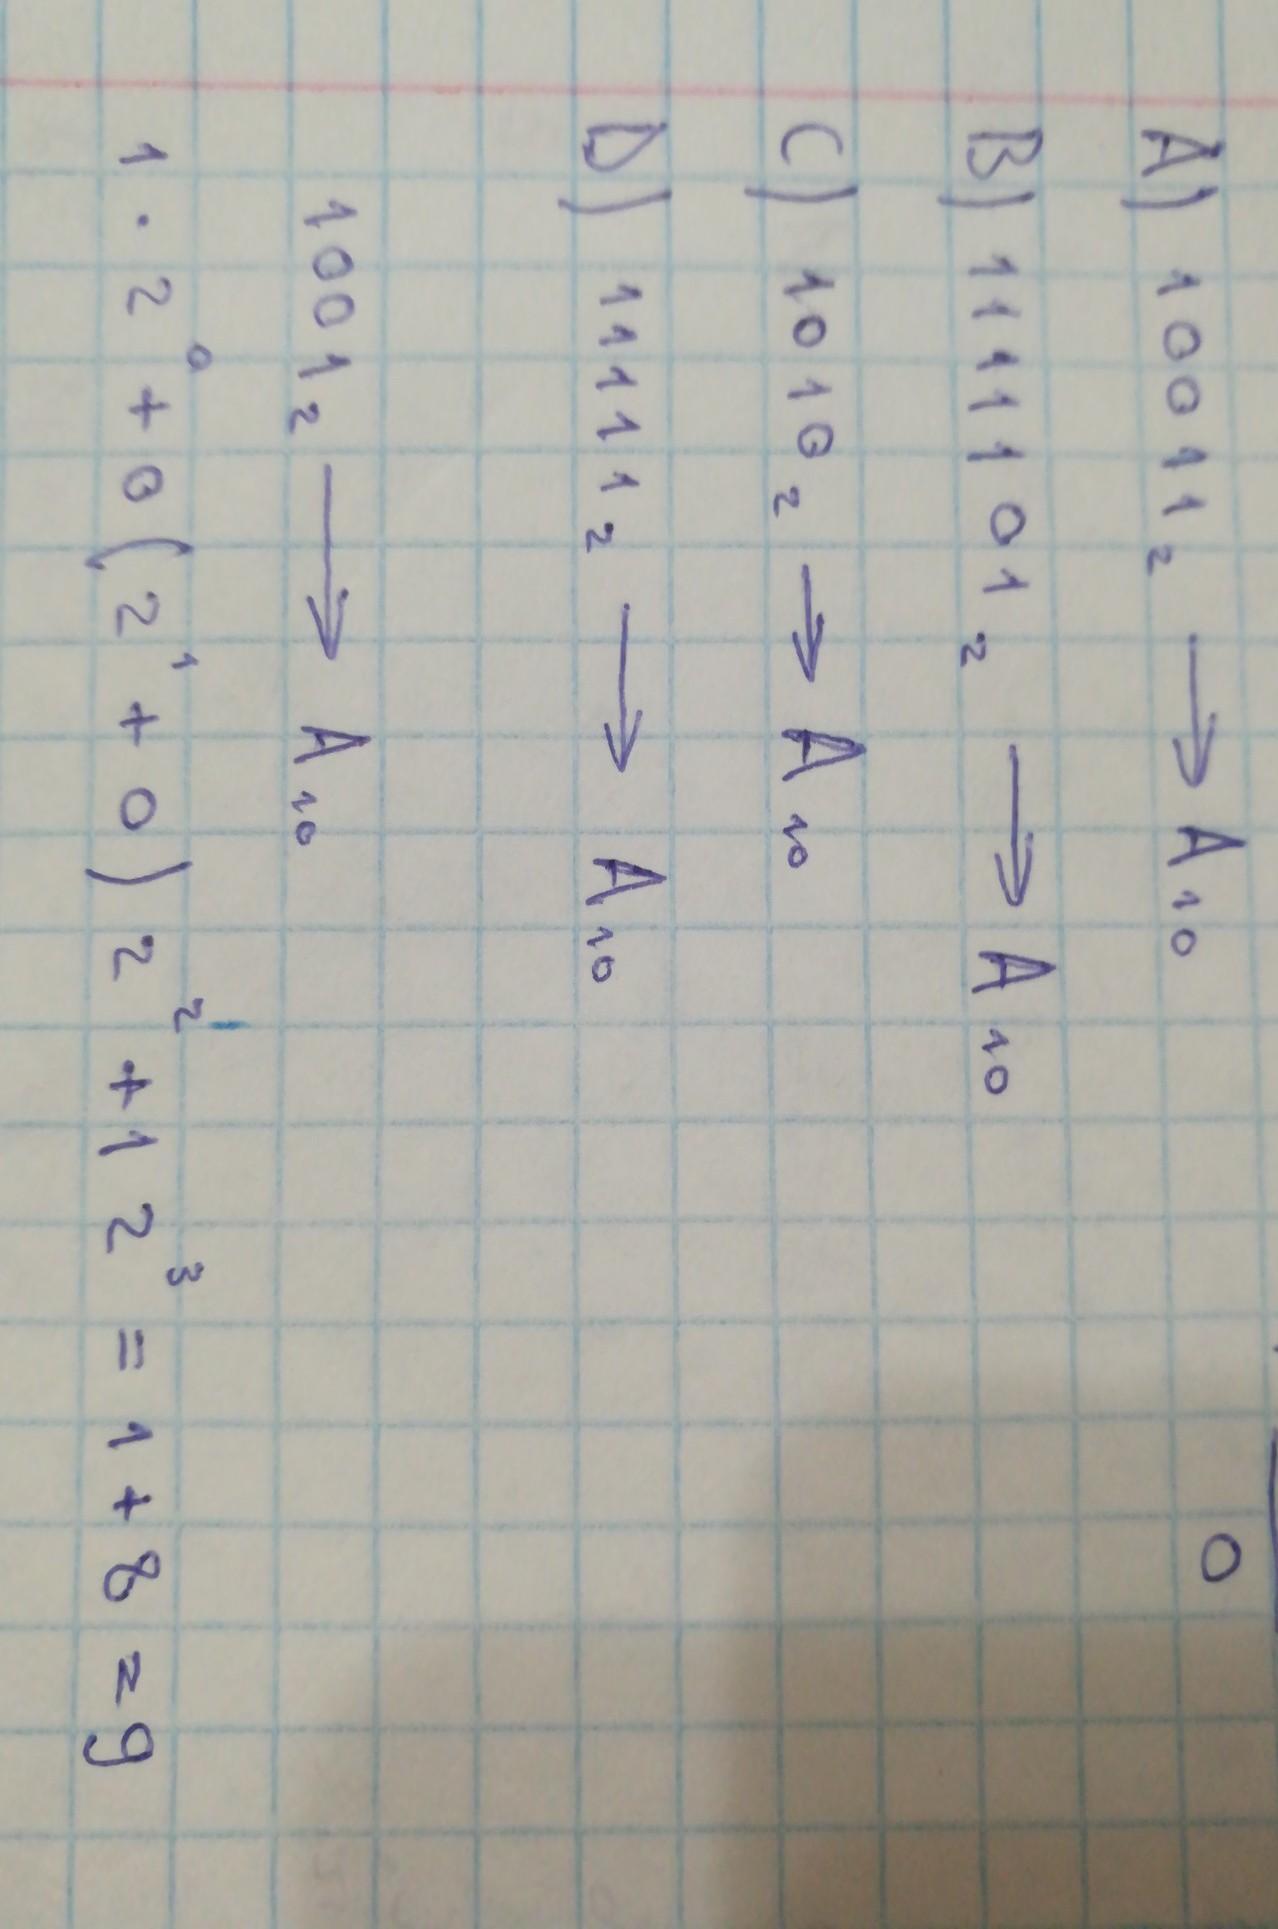 0
A) 10011₂ → A₁₀
B) 1111101₂ → A₁₀
C) 1010₂ → A₁₀
D) 11111₂ → A₁₀
1001₂ → A₁₀
1 · 2⁰ + 0(2¹ + 0)2² + 1 2³ = 1 + 8 = 9